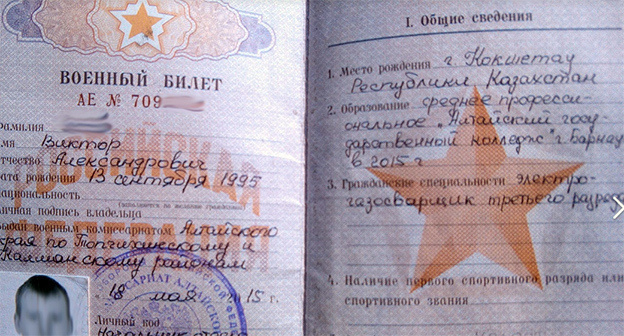 ВОЕННЫЙ БИЛЕТ
АЕ № 709
Фамилия
Имя Виктор
Отчество Александрович
Дата рождения 13 сентября 1995
Национальность
(заполняется по желанию гражданина)
Личная подпись владельца
Выдан военным комиссариатом Алтайского
края по Топчихинскому и
Калманскому районам
18 мая 2015 г.
Личный код
Начальник отдела
I. Общие сведения
1. Место рождения г. Кокшетау
Республики Казахстан
2. Образование среднее професси-
ональное „Алтайский госу-
дарственный колледж" г. Барнау
в 2015 г
3. Гражданские специальности электро-
газосварщик третьего разряда
4. Наличие первого спортивного разряда или
спортивного звания